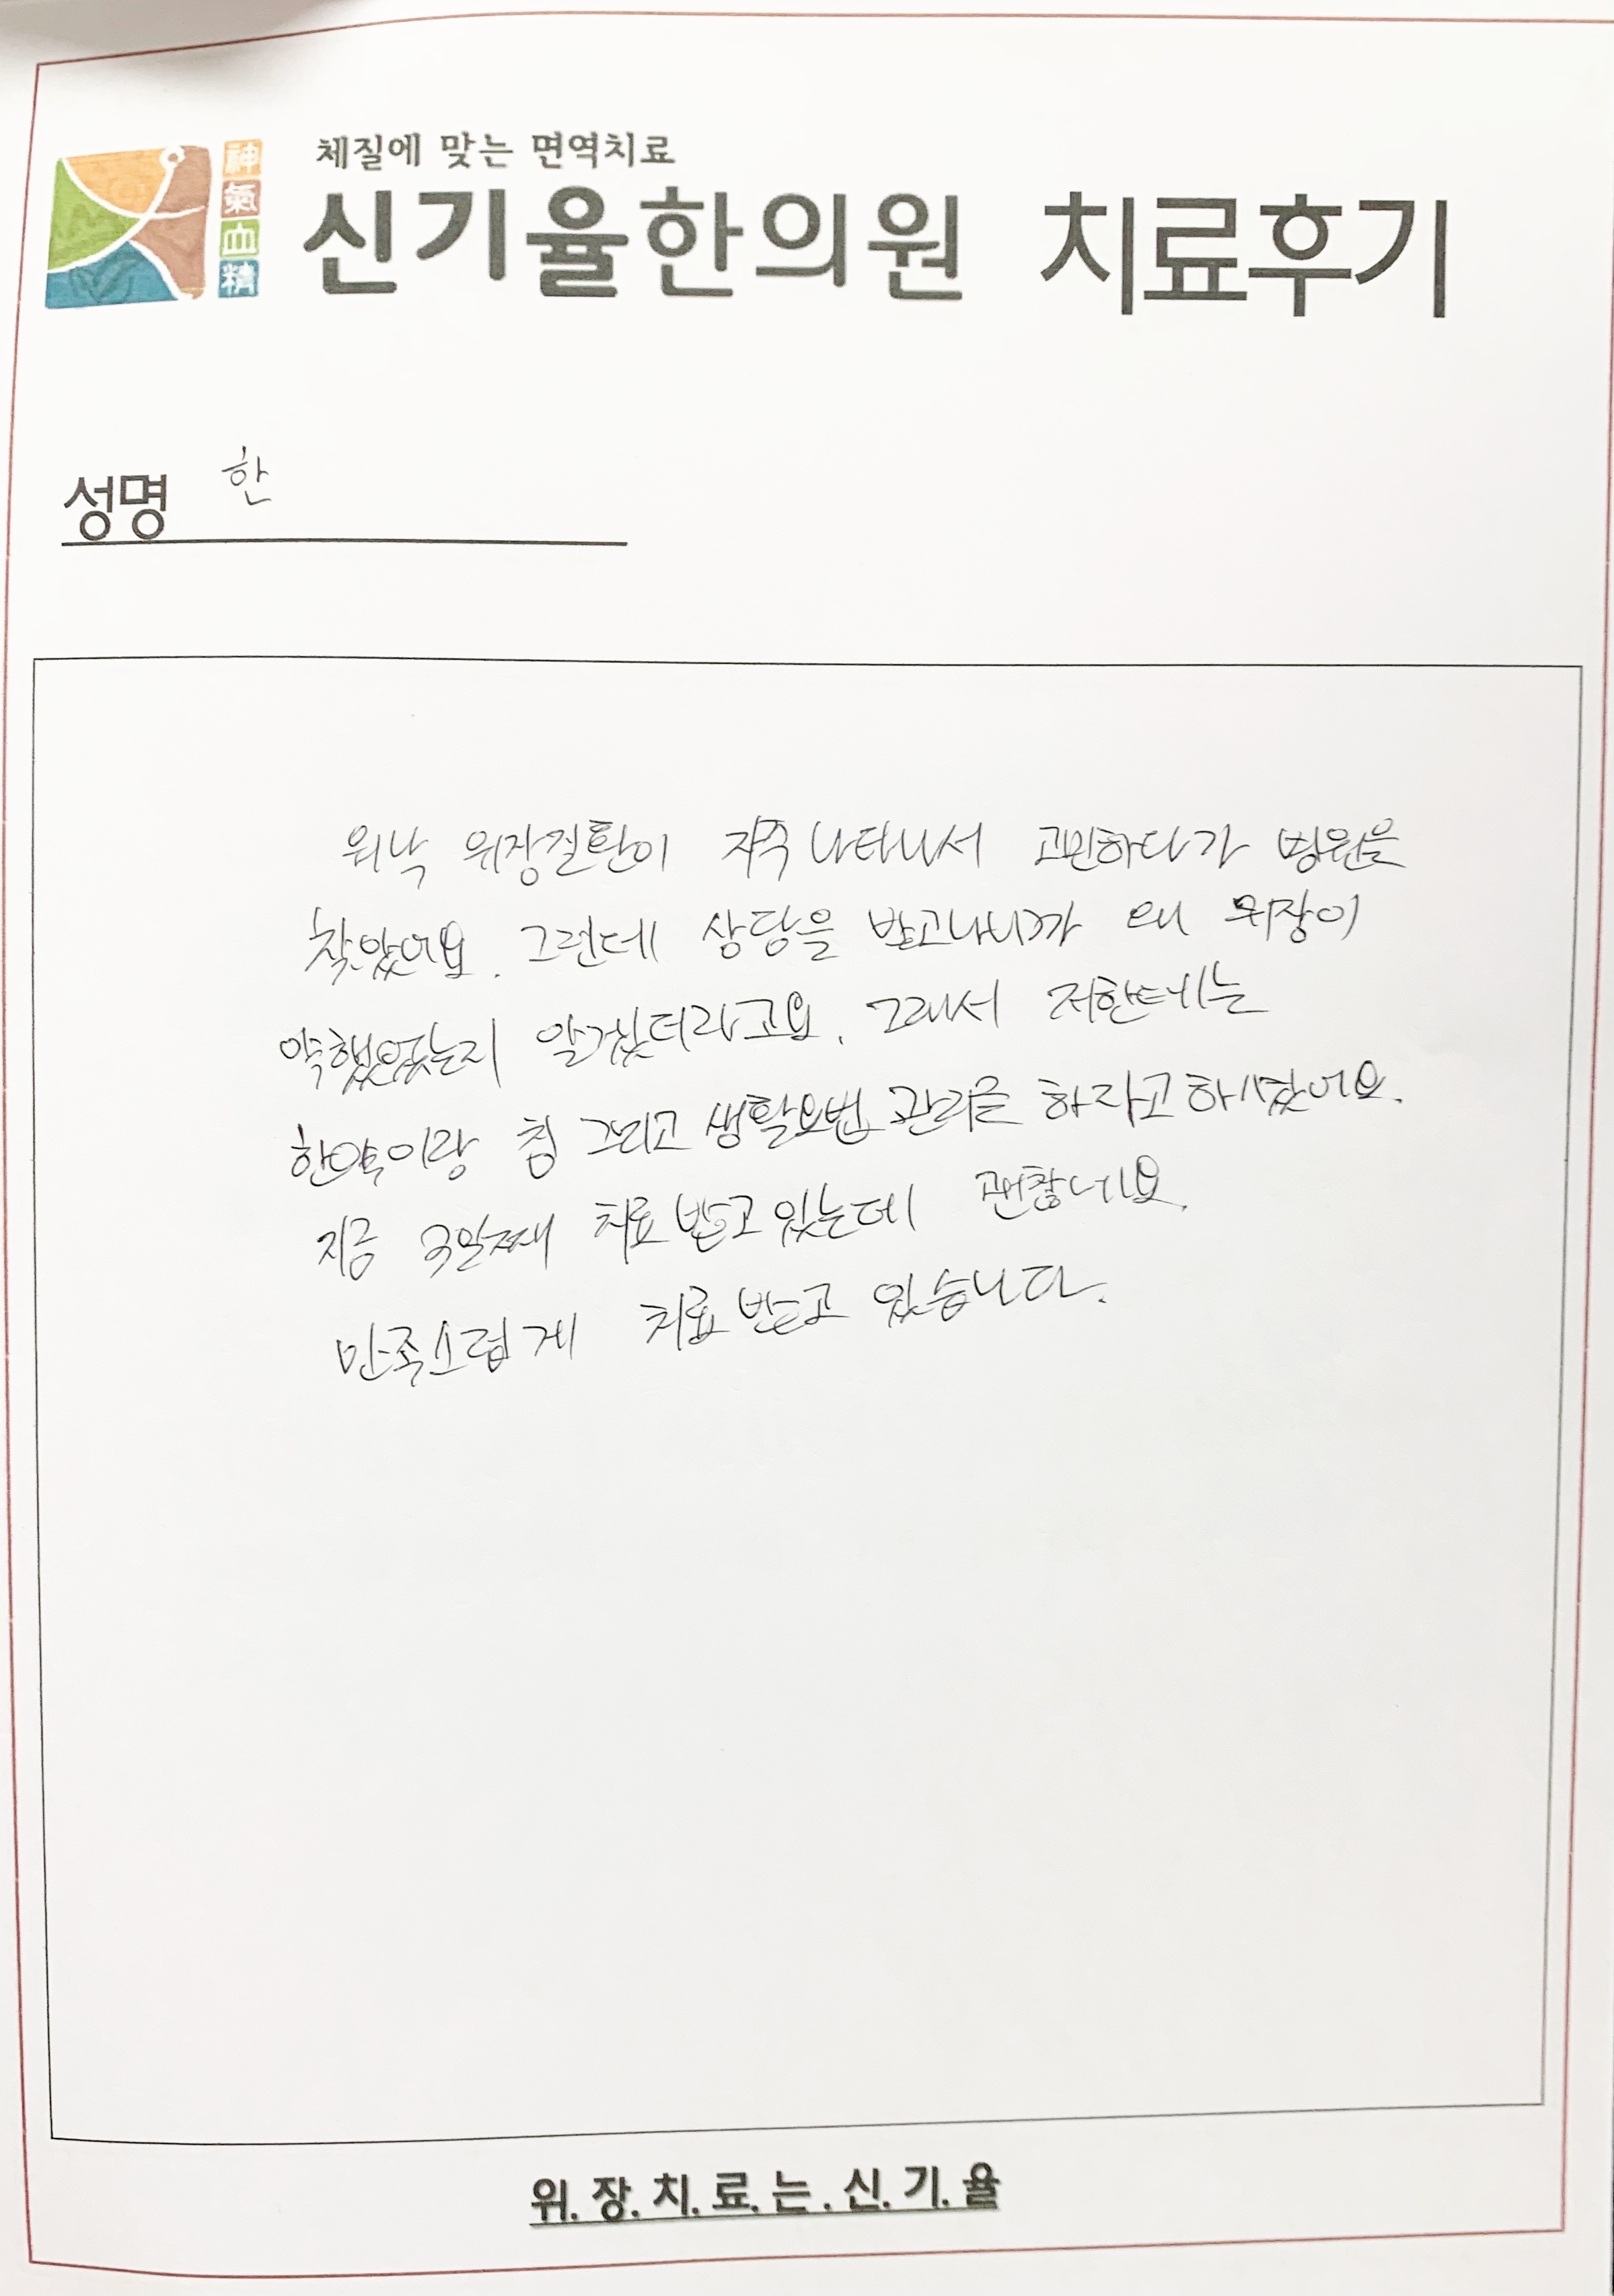 체질에 맞는 면역치료
神氣血精
신기율한의원 치료후기
성명 한
워낙 위장질환이 자주 나타나서 고민하다가 병원을
찾았어요. 그런데 상담을 받고나니까 왜 위장이
약했었는지 알겠더라고요. 그래서 저한테는
한약이랑 침 그리고 생활요법 관리를 하자고 하시었어요.
지금 3일째 치료받고 있는데 괜찮네요.
만족스럽게 치료받고 있습니다.
위.장.치.료.는.신.기.율